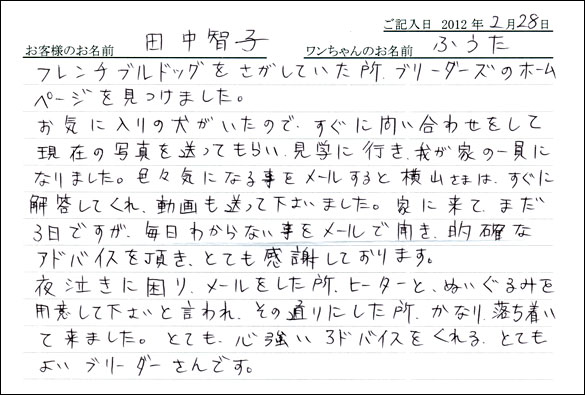 ご記入日 2012年2月28日
お客様のお名前 田中智子 ワンちゃんのお名前 ふうた
フレンチブルドッグをさがしていた所、ブリーダーズのホーム
ページを見つけました。
お気に入りの犬がいたので、すぐに問い合わせをして
現在の写真を送ってもらい、見学に行き、我が家の一員に
なりました。色々気になる事をメールすると横山さまは、すぐに
解答してくれ、動画も送って下さいました。家に来て、まだ
3日ですが、毎日わからない事をメールで聞き、的確な
アドバイスを頂き、とても感謝しております。
夜泣きに困り、メールをした所、ヒーターと、ぬいぐるみを
用意して下さいと言われ、その通りにした所、かなり、落ち着い
て来ました。とても、心強いアドバイスをくれる、とても
よいブリーダーさんです。